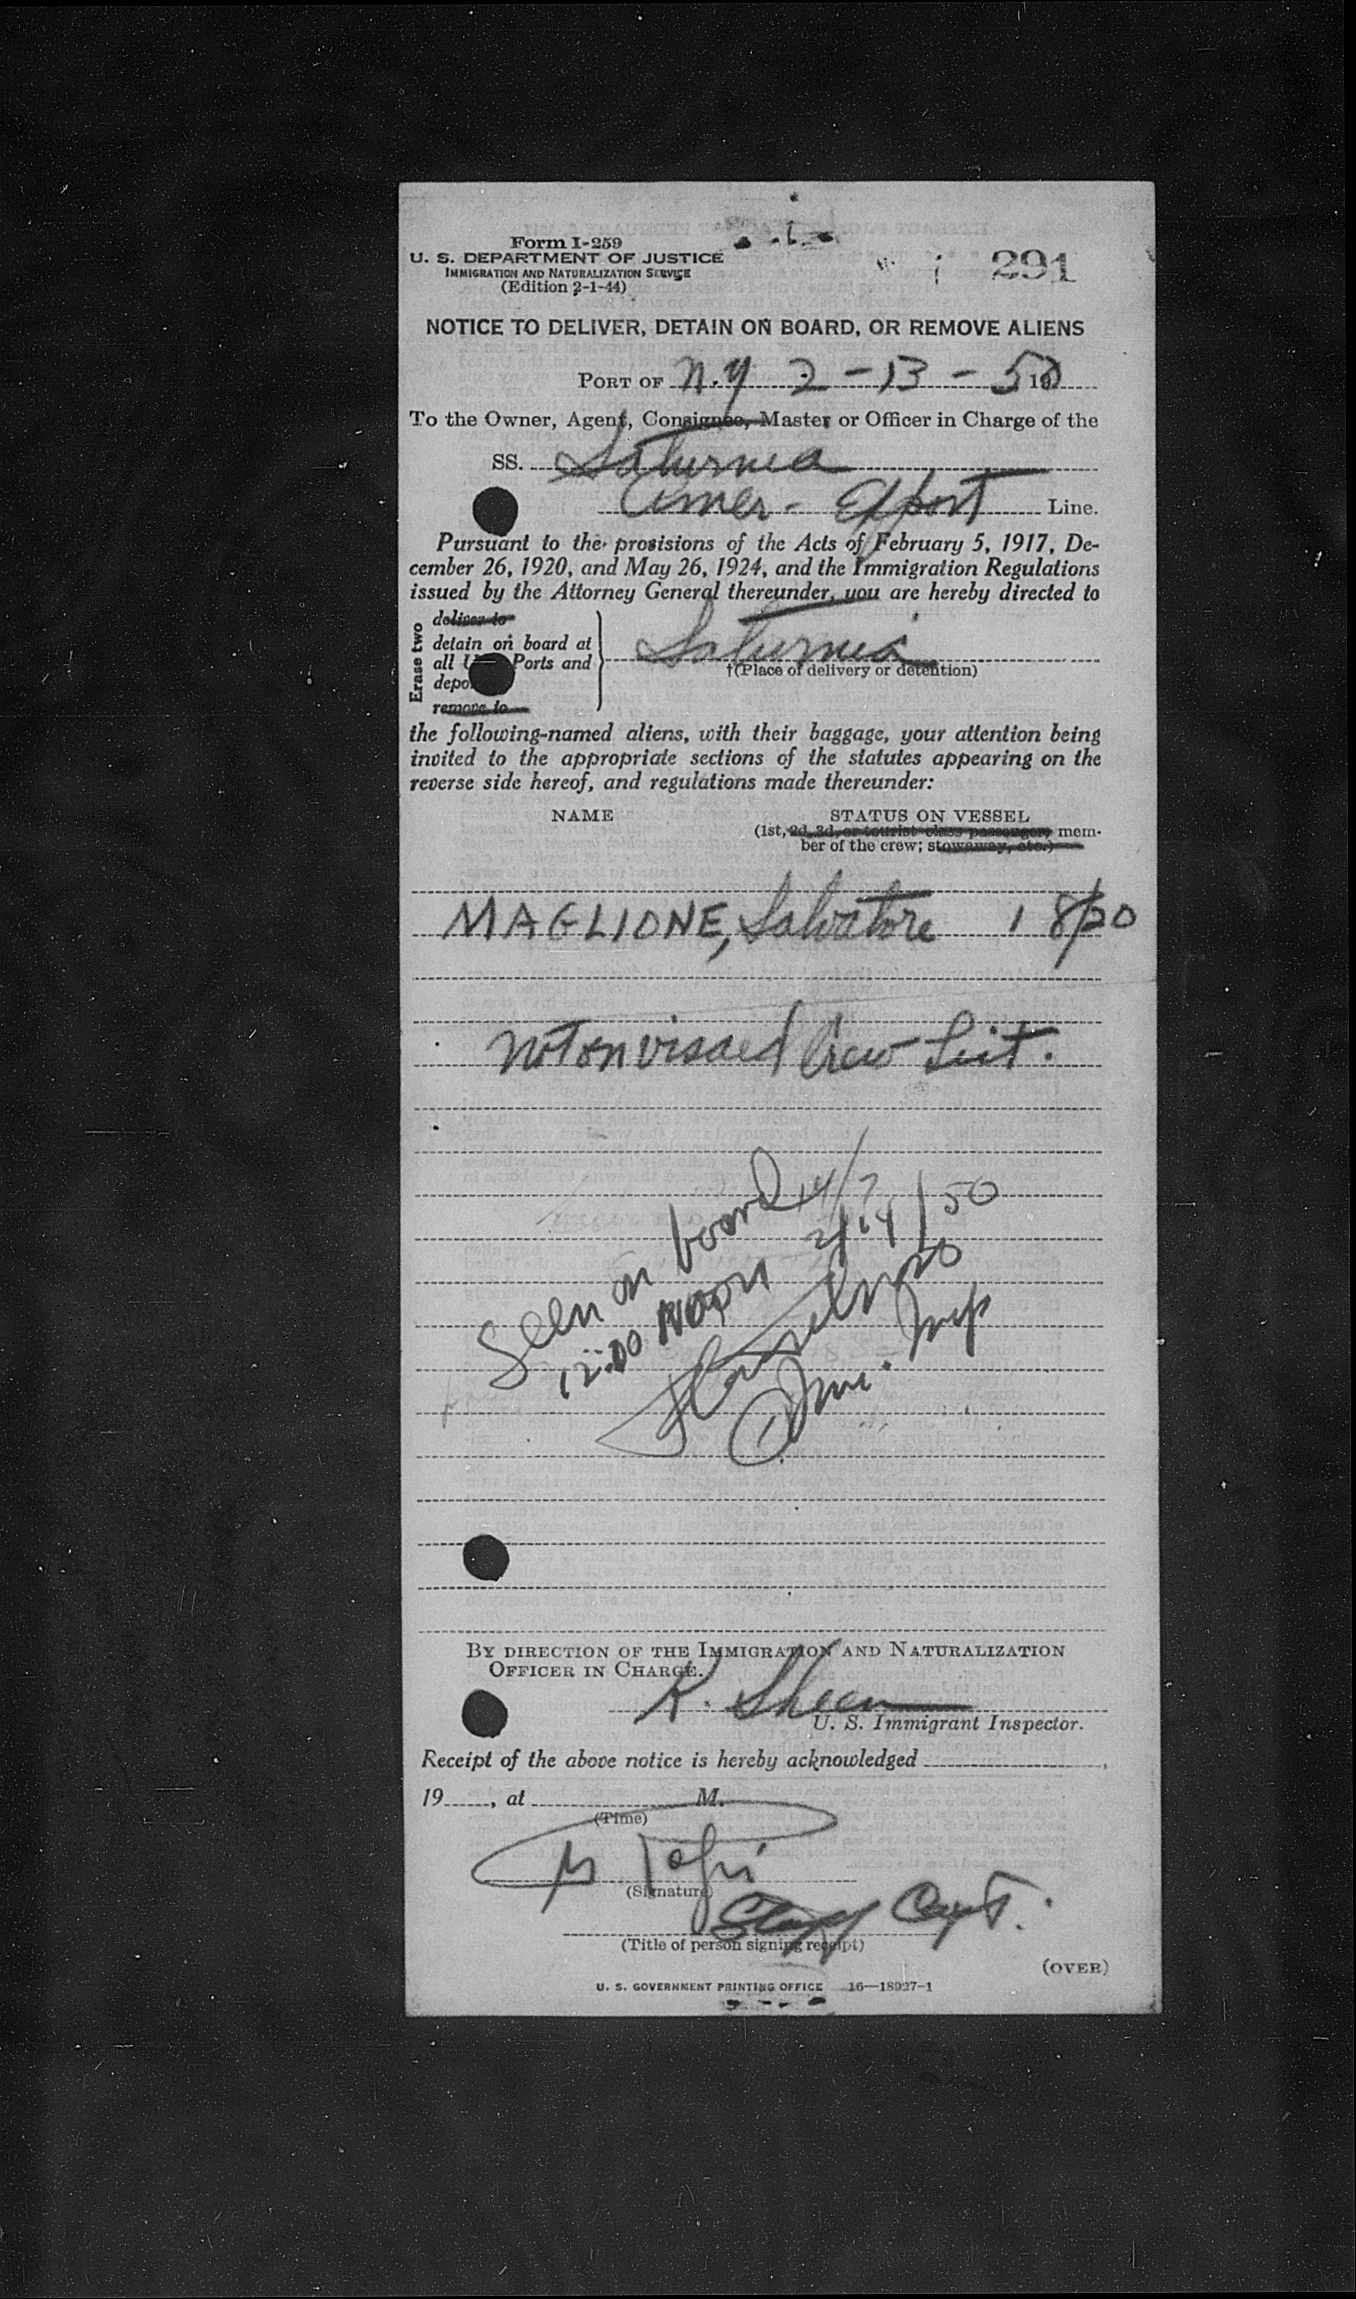 Form I-259
U. S. DEPARTMENT OF JUSTICE
IMMIGRATION AND NATURALIZATION SERVICE
(Edition 2-1-44)
291
NOTICE TO DELIVER, DETAIN ON BOARD, OR REMOVE ALIENS
PORT OF N.Y 2-13-50 19
To the Owner, Agent, Consignee, Master or Officer in Charge of the
SS. Saturnia
Amer- Export Line.
Pursuant to the provisions of the Acts of February 5, 1917, De-
cember 26, 1920, and May 26, 1924, and the Immigration Regulations
issued by the Attorney General thereunder, you are hereby directed to
Erase two
deliver to
detain on board at
all U. Ports and
depo
remove to
Saturnia
†(Place of delivery or detention)
the following-named aliens, with their baggage, your attention being
invited to the appropriate sections of the statutes appearing on the
reverse side hereof, and regulations made thereunder:
NAME STATUS ON VESSEL
(1st, 2d, 3d, or tourist class passenger; mem-
ber of the crew; stowaway, etc.)
MAGLIONE, Salvatore 1 8/20
not on visaed Crew List.
Seen on board
12:00 NOON 2/14/50
Imm. Insp
BY DIRECTION OF THE IMMIGRATION AND NATURALIZATION
OFFICER IN CHARGE.
K. Sheen
U. S. Immigrant Inspector.
Receipt of the above notice is hereby acknowledged
19, at M.
(Time)
(Signature)
Staff Capt.
(Title of person signing receipt)
(OVER)
U. S. GOVERNMENT PRINTING OFFICE 16—18927-1